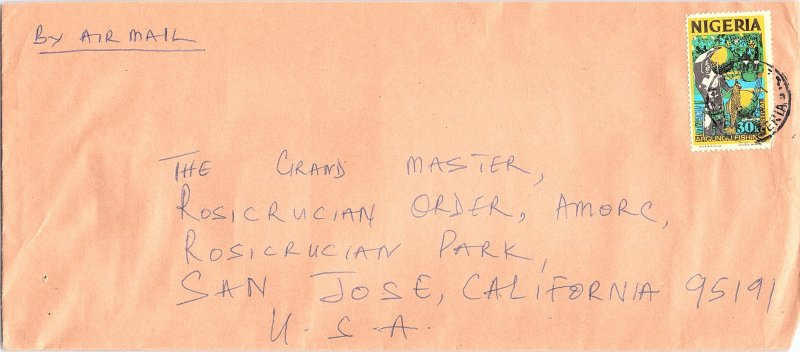 By AIR MAIL
NIGERIA
30k
ARGUNGU FISHING
FESTIVAL
THE GRAND MASTER,
ROSICRUCIAN ORDER, AMORC,
ROSICRUCIAN PARK,
SAN JOSE, CALIFORNIA 95191
U.S.A.